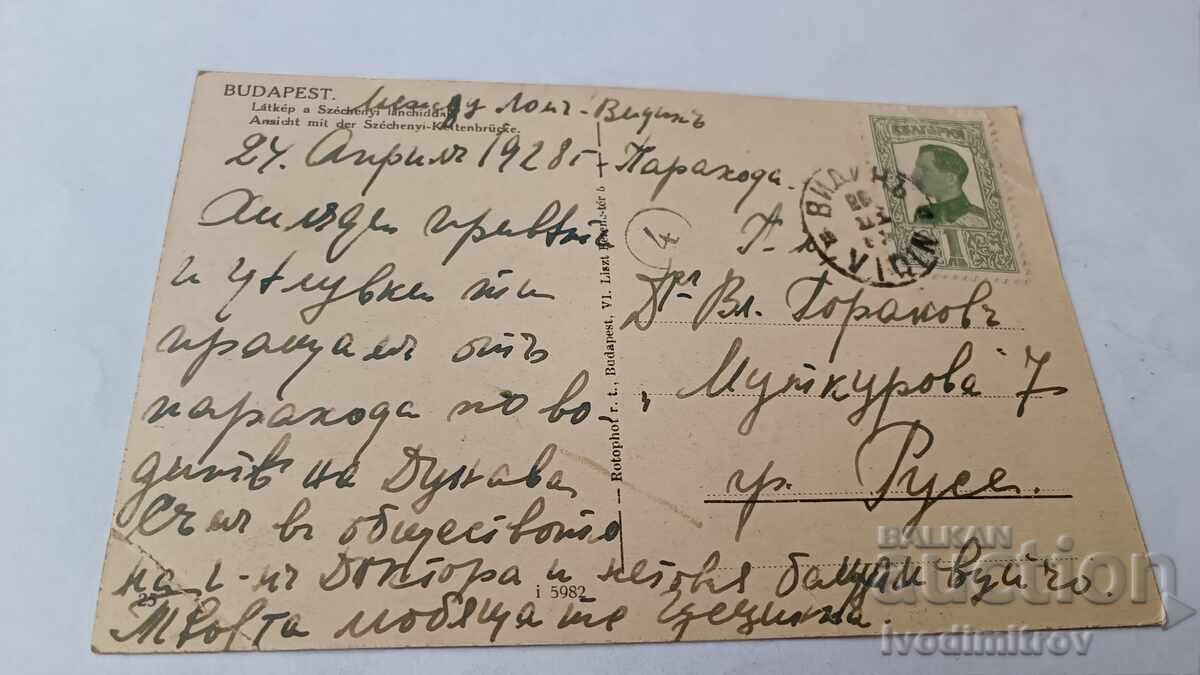 BUDAPEST.
Látkép a Széchenyi lánchíddal
Ansicht mit der Széchenyi-Kettenbrücke.
между Ломъ-Видинъ
24. Априлъ 1928 г. Парахода.
Хиляди привѣти
и цѣлувки ти
пращамъ отъ
парахода по во-
дитѣ на Дунава.
Съмъ въ обществото
на г-нъ Доктора и неговия баща и вуйчо.
Твоята любяща те
25
i 5982
Rotophot r. t., Budapest, VI. Liszt Ferenc-tér 5
4
БЪЛГАРИЯ
1
ВИДИН
VIDIN
Г-нъ
Д-ръ Вл. Горановъ
Муткурова 7
гр. Русе.
BALKAN
auction
ivodimitrov